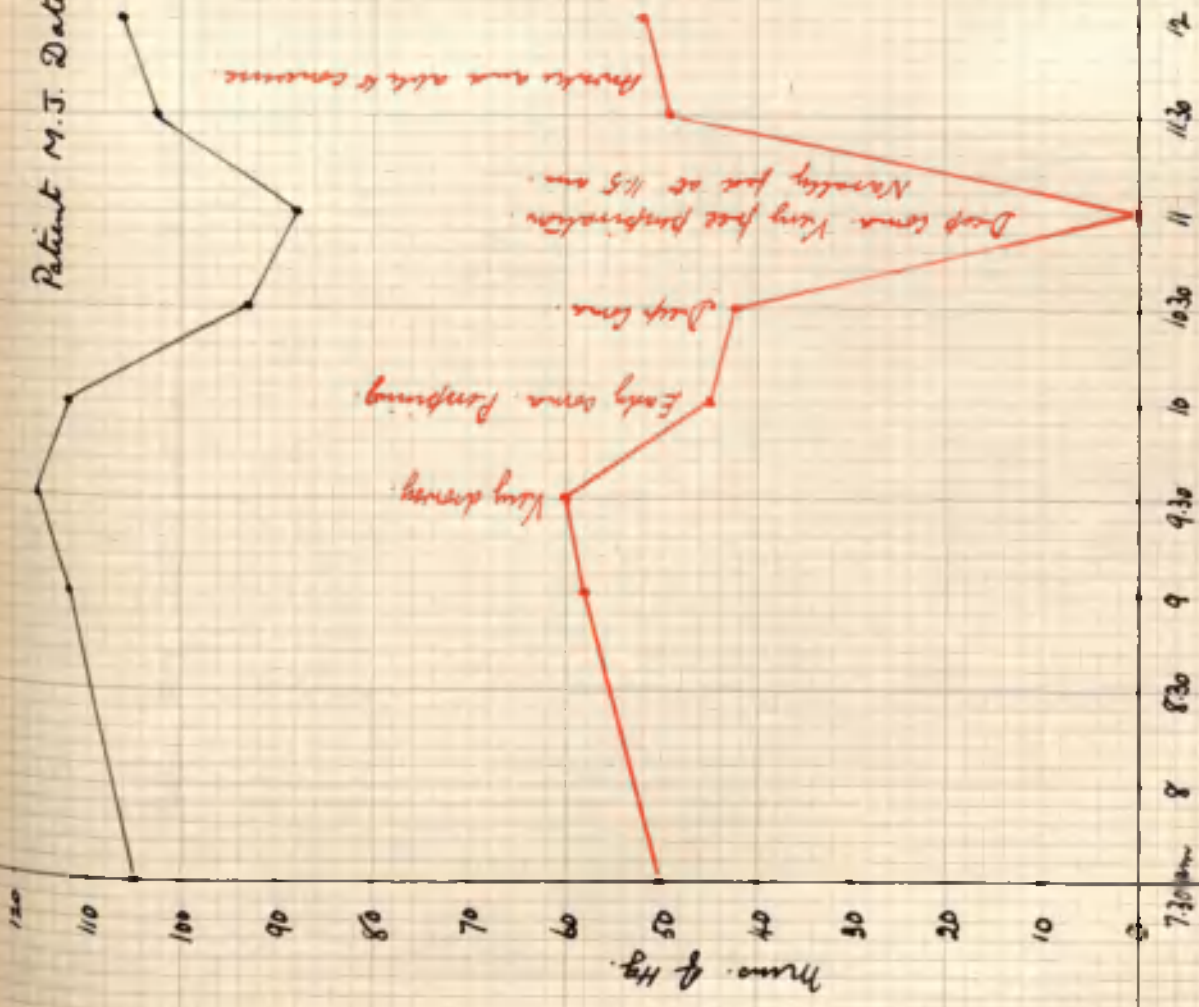 Patient M.J. Date
120
110
100
90
80
70
60
50
40
30
20
10
0
mms. of Hg.
7.30 am
8
8.30
9
9.30
10
10.30
11
11.30
12
Very drowsy.
Early coma. Perspiring.
Deep coma.
Deep coma. Very free perspiration.
Nasally fed at 11.5 am.
Awake and able to converse.